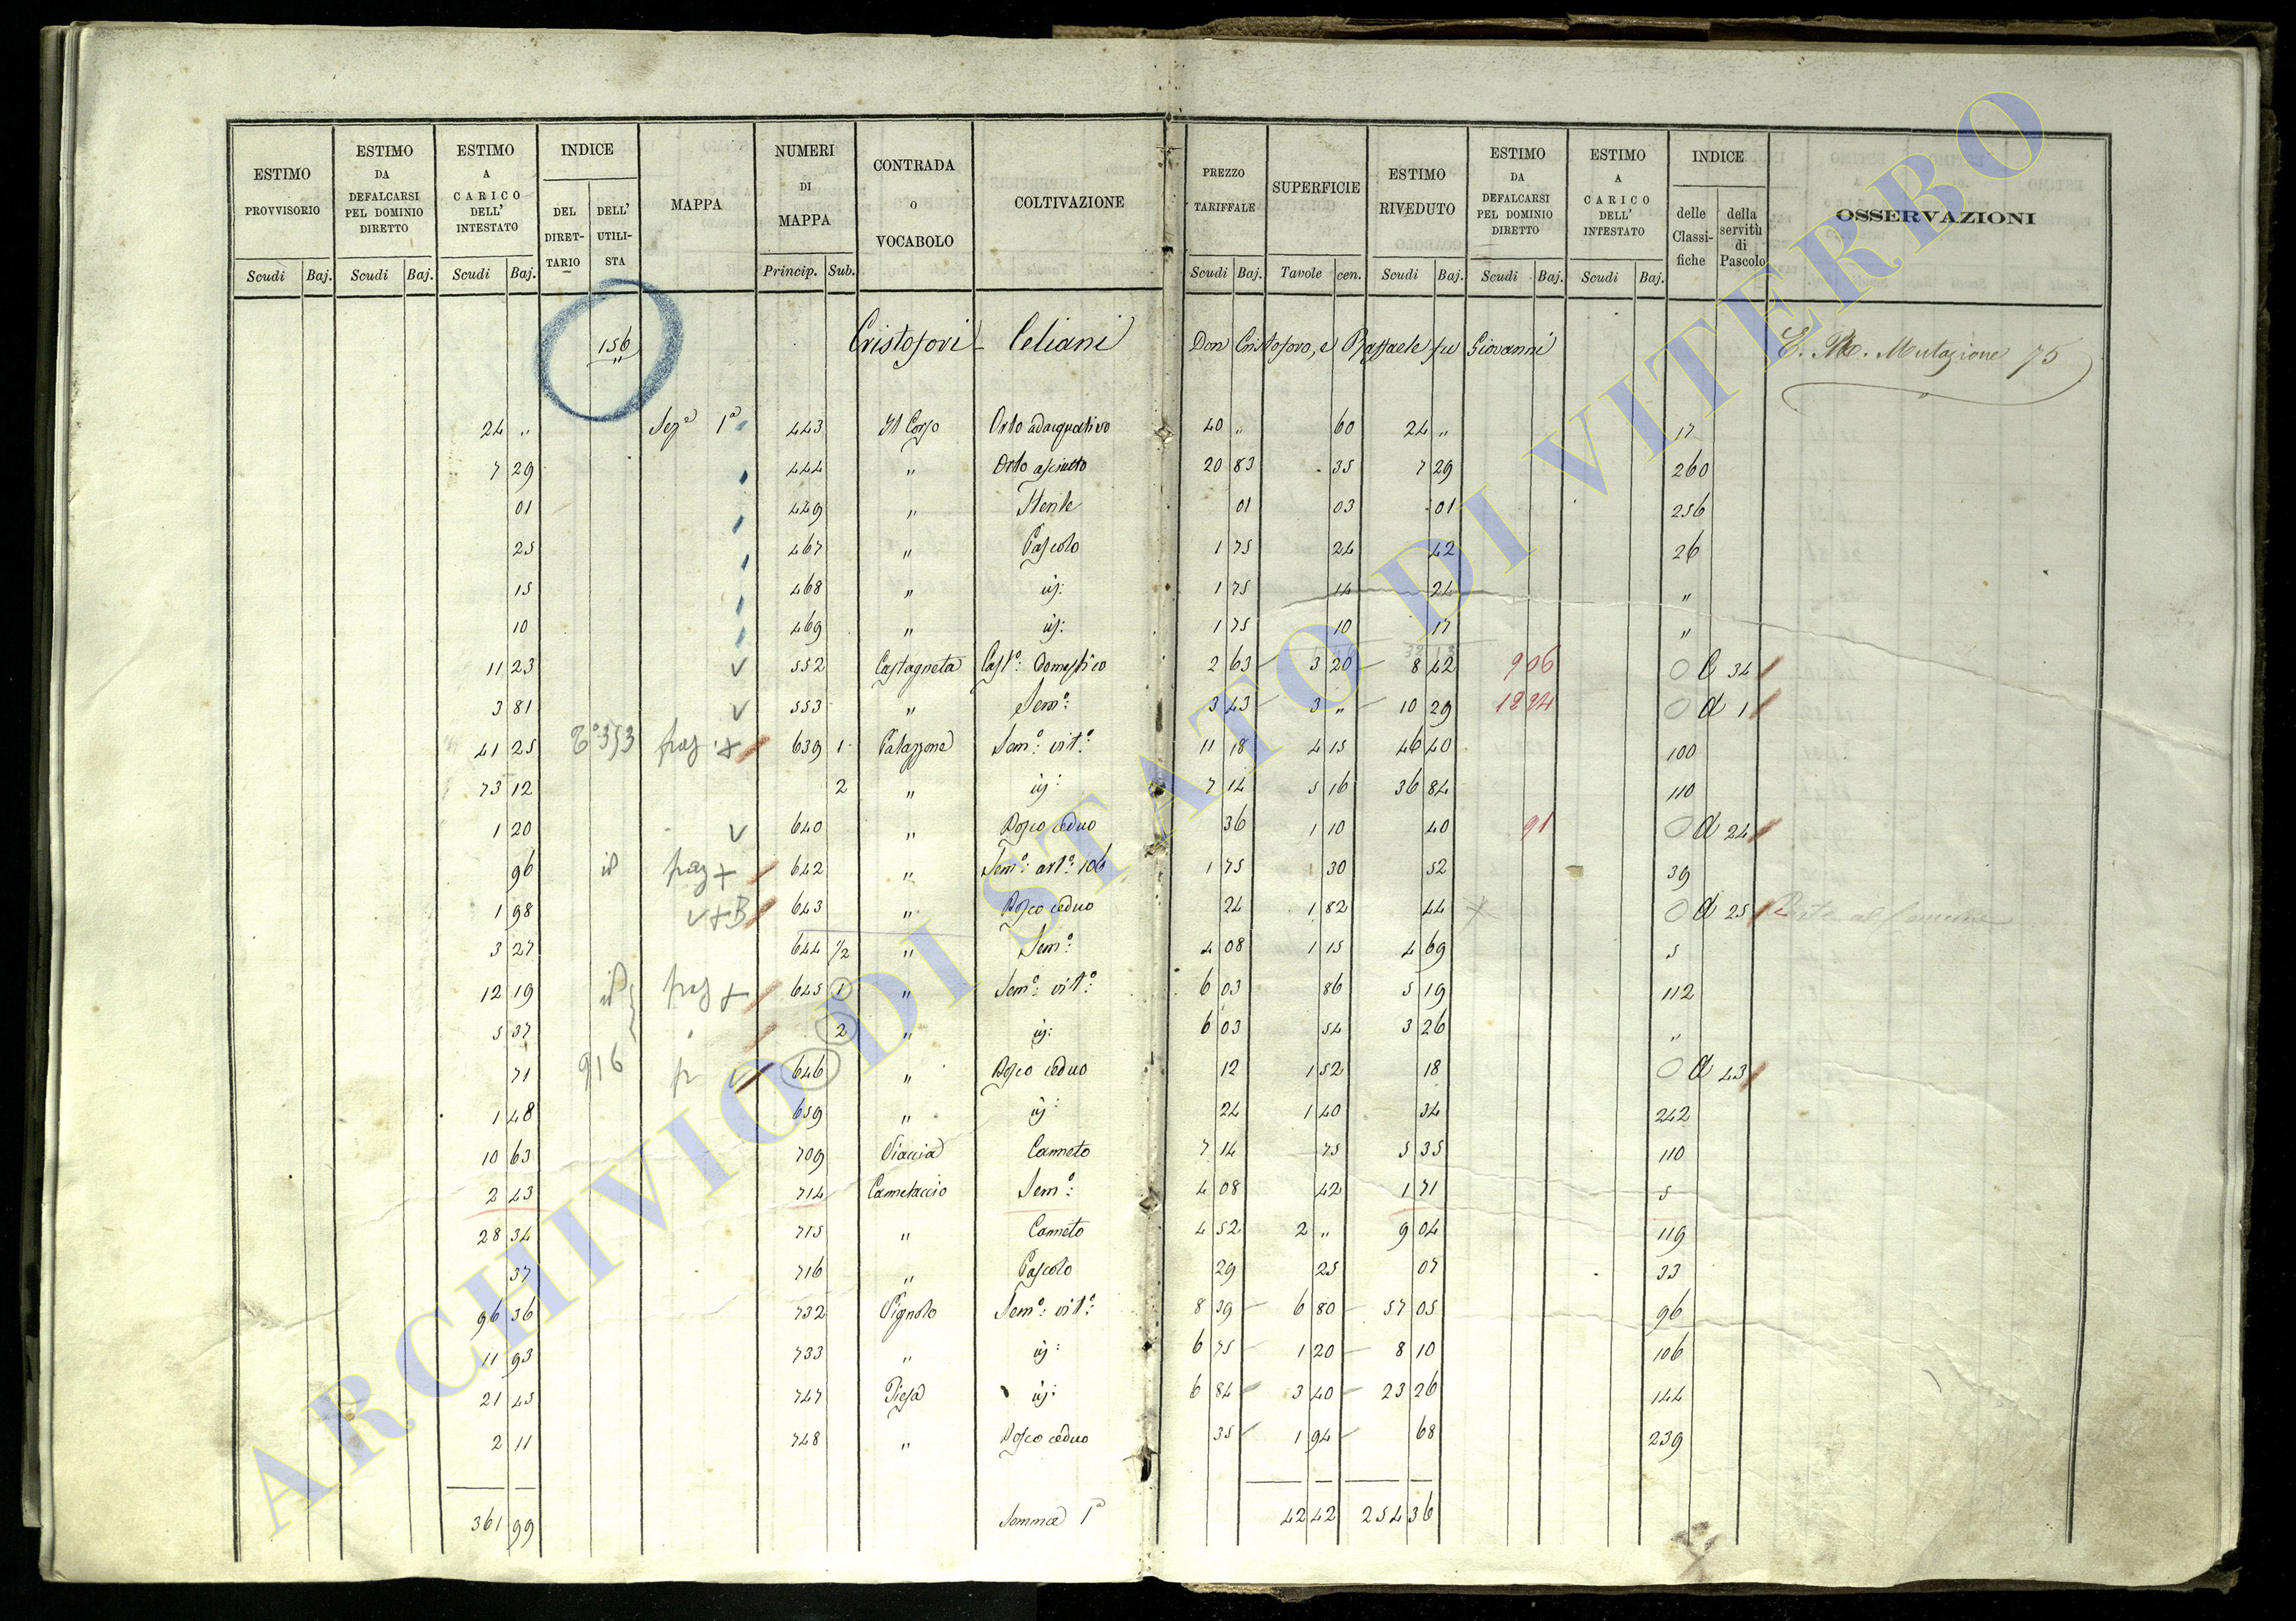 ESTIMO PROVVISORIO ESTIMO DA DEFALCARSI PEL DOMINIO DIRETTO ESTIMO A CARICO DELL' INTESTATO INDICE DEL DIRET-TARIO DELL' UTILI-STA MAPPA NUMERI DI MAPPA CONTRADA o VOCABOLO COLTIVAZIONE PREZZO TARIFFALE SUPERFICIE ESTIMO RIVEDUTO ESTIMO DA DEFALCARSI PEL DOMINIO DIRETTO ESTIMO A CARICO DELL' INTESTATO INDICE delle Classi-fiche della servitù di Pascolo OSSERVAZIONI
Scudi Baj. Scudi Baj. Scudi Baj. Princip. Sub. Scudi Baj. Tavole cen. Scudi Baj. Scudi Baj. Scudi Baj.
156 Cristofori - Celiani Don Cristoforo, e Raffaele fu Giovanni Mutazione 75
24 " Sez.e 1a 443 Il Corso Orto adacquativo 40 " 60 24 " 17
7 29 444 " Orto asciutto 20 83 35 7 29 260
01 449 " 01 03 01 256
25 467 " Pascolo 1 75 24 42 26
15 468 " id: 1 75 14 24 "
10 469 " id: 1 75 10 17 "
11 23 V 552 Castagneta Cast.o: Domestico 2 63 3 20 8 42 906 C 34
3 81 V 553 " Sem.o: 3 43 3 " 10 29 1224 A 1
41 25 353 fraz + 639 1 Palazzone Sem.o: vit.o 11 18 4 15 46 40 100
73 12 2 " id: 7 14 5 16 36 84 110
1 20 V 640 " Bosco ceduo 36 1 10 40 91 A 24
96 id fraz + 642 " Sem.o: art.o: 106 1 75 30 52 39
1 98 V + B 643 " Bosco ceduo 24 1 82 44 + A 25
3 27 644 1/2 " Sem.o: 4 08 1 15 4 69 5
12 19 id fraz + 645 1 " Sem.o: vit.o: 6 03 86 5 19 112
5 37 2 " id: 6 03 54 3 26 "
71 916 fr V 646 " Bosco ceduo 12 1 52 18 A 43
1 48 659 " id: 24 1 40 34 242
10 63 709 Viaccia Canneto 7 14 75 5 35 110
2 43 714 Cannetaccio Sem.o: 4 08 42 1 71 5
28 34 715 " Canneto 4 52 2 " 9 04 119
37 716 " Pascolo 29 25 07 33
96 36 732 Pignolo Sem.o: vit.o: 8 39 6 80 57 05 96
11 93 733 " id: 6 75 1 20 8 10 106
21 45 747 id: 6 84 3 40 23 26 144
2 11 748 " Bosco ceduo 35 1 94 68 239
361 99 Somma 1a 42 42 254 36
ARCHIVIO DI STATO DI VITERBO